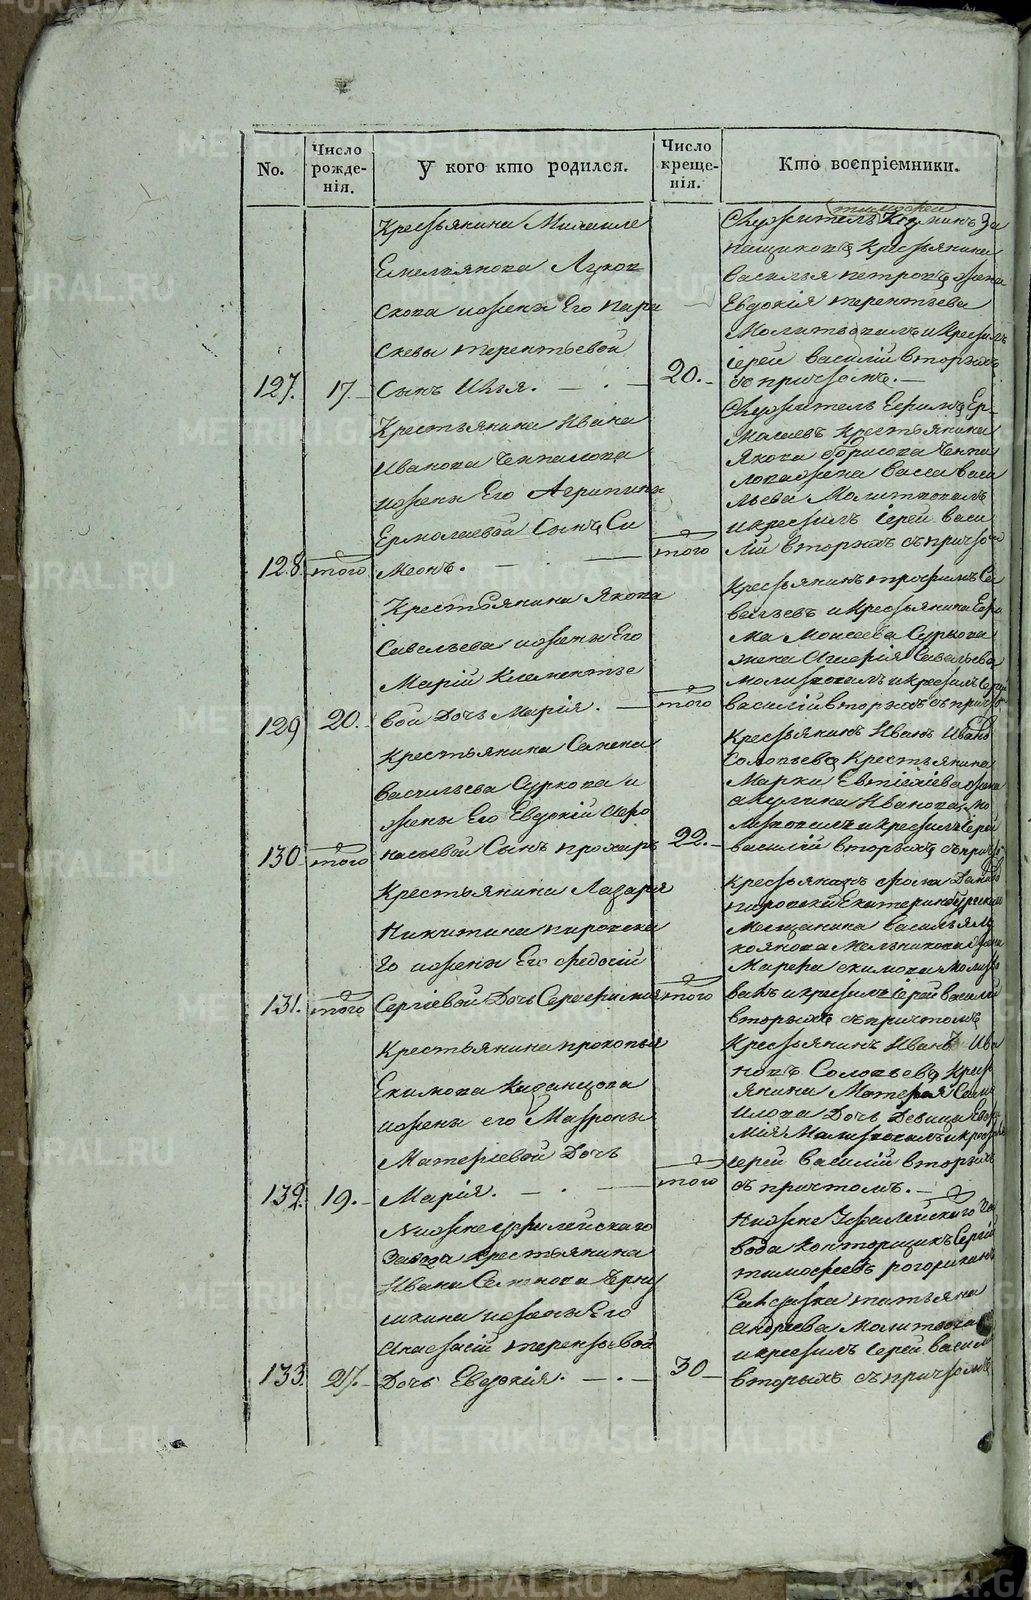 No.
Число рожде-нія.
У кого кто родился.
Число креще-нія.
Кто воспріемники.
Крестьянина Михаиле
Емельянова Луков
скова и жены Его Пара
скевы терентьевой
127. 17. Сынъ Илья.
20.
тимофей
Служитель Козминъ За
пащиковъ Крестьянина
Василья петрова жена
Евдокія терентьева
Молитвовалъ и крестилъ
іерей Василій вторыхъ
съ причтомъ.
Крестьянина Ивана
Иванова Чепалова
и жены Его Агрипины
Ермолаевой Сынъ Си
128. того меонъ.
того
Служитель Ефимъ Ер-
Крестьянина
Якова Борисова Чепа
лова жена Васса Васи
льева Молитвовалъ
и крестилъ іерей Васи
лій вторыхъ съ причто
Крестьянина Якова
Савельева и жены Его
Маріи Клементье
129 20. вой Дочь Марія.
того
Крестьянинъ трофимъ Са
вельевъ и Крестьянина Ефи
ма Моисеева Суркова
жена Савельева
молитвовалъ и крестилъ Іерей
Василій вторыхъ съ причто
Крестьянина Семена
Васильева Суркова и
жены Его Евдокіи Афо
130 того насьевой Сынъ прохоръ
22.
Крестьянинъ Иванъ Ивано
Соловьевъ Крестьянина
Марка Евтіхіева жена
акулина Иванова мо
литвовалъ и крестилъ Іерей
василій вторыхъ съ причто
Крестьянина Лазаря
Никитина пировска
го и жены Его Федосіи
131. того Сергіевой Дочь Серафима
того
Крестьянинъ фома
пировскій Екатеринбургскій
Мещанина Василья
Мельникова жена
Марфа екимова молитво
валъ и крестилъ Іерей Василій
вторыхъ съ причтомъ
Крестьянина прокопья
Екимова Казанцова
и жены его Мавроны
Матвіевой Дочь
132. 19. Марія.
того
Крестьянинъ Иванъ Ива
новъ Соловьевъ Крест
янина Матвея Сам
илова Дочь Девица Евдо
Молитвовалъ и крестилъ
іерей Василій вторыхъ
съ причтомъ.
Нижнеуфалейскаго
Завода крестьянина
Ивана Семенова Черну
шкина и жены Его
Анастасіи терентьевой
133. 27. Дочь Евдокія.
30
Нижне Уфалейскаго За
вода Конторщикъ Сергій
тимофеевъ
татьяна
Андреева Молитвовалъ
и крестилъ Іерей Василій
вторыхъ съ причтомъ
METRIKI.GASO-URAL.RU